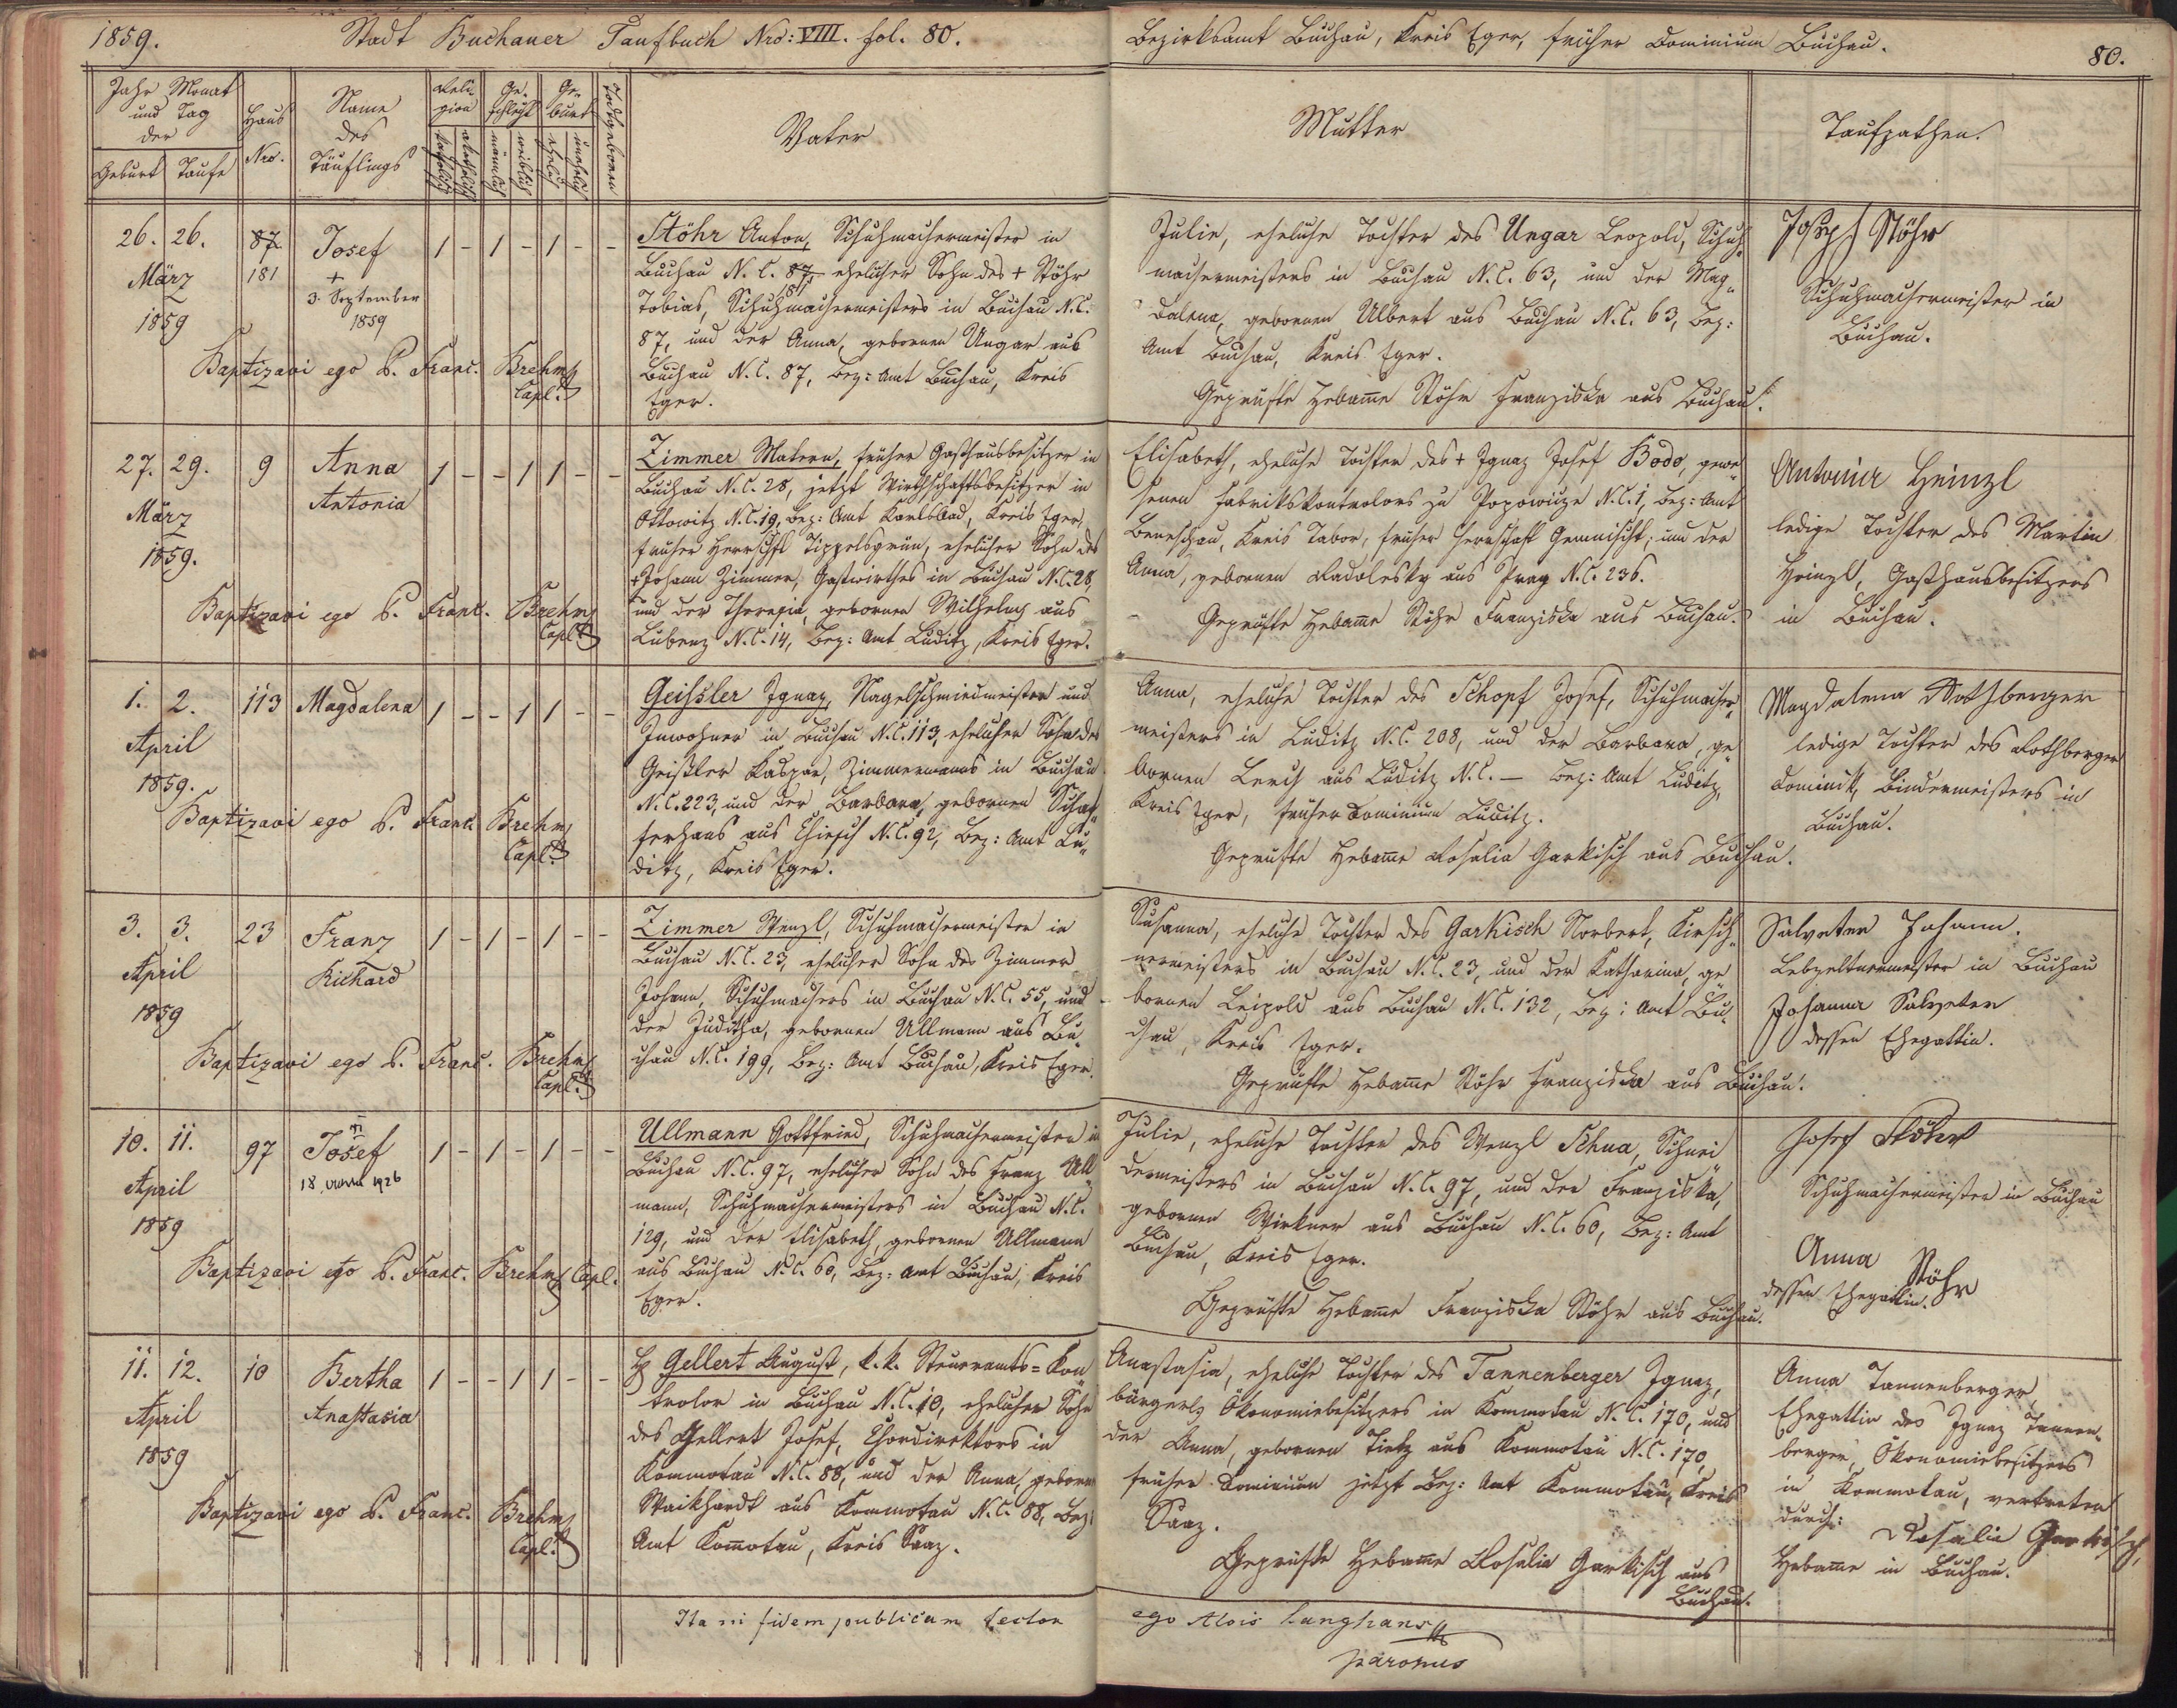 1859.
Stadt Buchauer Taufbuch Nro: VIII. fol. 80.
Bezirksamt Buchau, Kreis Eger, früher Dominium Buchau.
80.
Jahr Monat
und Tag
der
Geburt Taufe
Haus
Nro.
Name
des
Täuflings
Reli-
gion
katholisch
akatholisch
Ge-
schlecht
männlich
weiblich
Ge-
burt
ehelich
unehelich
Todtgeboren
Vater
Mutter
Taufpathen.
26. 26.
März
1859
87
181
Josef
+
3. September
1859
1 - 1 - 1 - -
Baptizavi ego P. Franc. Brehm
Capl.
Stöhr Anton, Schuhmachermeister in
Buchau N.C. 87 ehelicher Sohn des + Stöhr
181
Tobias, Schuhmachermeisters in Buchau N.C.
87, und der Anna, gebornen Ungar aus
Buchau N.C. 87, Bez: Amt Buchau, Kreis
Eger.
Julie, eheliche Tochter des Ungar Leopold, Schuh-
machermeisters in Buchau N.C. 63, und der Mag-
dalena, gebornen Albert aus Buchau N.C. 63, Bez:
Amt Buchau, Kreis Eger.
Geprüfte Hebamme Stöhr Franziska aus Buchau.
Joseph Stöhr
Schuhmachermeister in
Buchau.
27. 29.
März
1859.
9
Anna
Antonia
1 - - 1 1 - -
Baptizavi ego P. Franc. Brehm
Capl.
Zimmer Matern, früher Gasthausbesitzer in
Buchau N.C. 28, jetzt Wirthschaftsbesitzer in
Ottowitz N.C. 19, Bez: Amt Karlsbad, Kreis Eger,
früher Herrschft Tippelsgrün, ehelicher Sohn des
+ Johann Zimmer, Gastwirthes in Buchau N.C. 28
und der Theresia, gebornen Wilhelm aus
Lubenz N.C. 14, Bez: Amt Luditz, Kreis Eger.
Elisabeth, eheliche Tochter des + Ignaz Josef Bodo, gewe-
senen Fabrikskontrolors zu Popowicze N.C. 1, Bez: Amt
Beneschau, Kreis Tabor, früher Herrschaft Gemnischt, und der
Anna, gebornen Radolesky aus Prag N.C. 236.
Geprüfte Hebamme Stöhr Franziska aus Buchau.
Antonia Heinzl
ledige Tochter des Martin
Heinzl, Gasthausbesitzers
in Buchau.
1. 2.
April
1859.
113
Magdalena
1 - - 1 1 - -
Baptizavi ego P. Franc. Brehm
Capl.
Geissler Ignaz, Nagelschmiedmeister und
Inwohner in Buchau N.C. 113, ehelicher Sohn des
Geißler Kaspar, Zimmermanns in Buchau
N.C. 223, und der Barbara, gebornen Schaf-
ferhans aus Chiesch N.C. 92, Bez: Amt Lu-
ditz, Kreis Eger.
Anna, eheliche Tochter des Schopf Josef, Schuhmacher-
meisters in Luditz N.C. 208, und der Barbara, ge-
bornen Lerch aus Luditz N.C. — Bez: Amt Luditz,
Kreis Eger, früher Dominium Luditz.
Geprüfte Hebamme Rosalia Garkisch aus Buchau.
Magdalena Rothberger
ledige Tochter des Rothberger
Dominik, Bindermeisters in
Buchau.
3. 3.
April
1859
23
Franz
Richard
1 - 1 - 1 - -
Baptizavi ego P. Franc. Brehm
Capl.
Zimmer Wenzl, Schuhmachermeister in
Buchau N.C. 23, ehelicher Sohn des Zimmer
Johann, Schuhmachers in Buchau N.C. 55, und
der Juditha, gebornen Ullmann aus Bu-
chau N.C. 199, Bez: Amt Buchau, Kreis Eger.
Susanna, eheliche Tochter des Garkisch Norbert, Kirsch-
nermeisters in Buchau N.C. 23, und der Katharina, ge-
bornen Leipold aus Buchau N.C. 132, Bez: Amt Bu-
chau, Kreis Eger.
Geprüfte Hebamme Stöhr Franziska aus Buchau.
Salvater Johann.
Lebzeltnermeister in Buchau
Johanna Salvater
dessen Ehegattin.
10. 11.
April
1859
97
Josef
18. 1926
1 - 1 - 1 - -
Baptizavi ego P. Franc. Brehm Capl.
Ullmann Gottfried, Schuhmachermeister in
Buchau N.C. 97, ehelicher Sohn des Franz Ull-
mann, Schuhmachermeisters in Buchau N.C.
129, und der Elisabeth, gebornen Ullmann
aus Buchau N.C. 60, Bez: Amt Buchau, Kreis
Eger.
Julie, eheliche Tochter des Wenzl Schua, Schnei-
dermeisters in Buchau N.C. 97, und der Franziska,
gebornen Wirkner aus Buchau N.C. 60, Bez: Amt
Buchau, Kreis Eger.
Geprüfte Hebamme Franziska Stöhr aus Buchau.
Josef Stöhr
Schuhmachermeister in Buchau
Anna Stöhr
dessen Ehegattin.
11. 12.
April
1859
10
Bertha
Anastasia
1 - - 1 1 - -
Baptizavi ego P. Franc. Brehm
Capl.
H Gellert August, k.k. Steueramts-Kon-
trolor in Buchau N.C. 10, ehelicher Sohn
des Gellert Josef, Chordirektors in
Kommotau N.C. 88, und der Anna, gebornen
Waikhardt aus Kommotau N.C. 88, Bez:
Amt Kommotau, Kreis Saaz.
Anastasia, eheliche Tochter des Tannenberger Ignaz,
bürgerl. Ökonomiebesitzers in Kommotau N.C. 170, und
der Anna, gebornen Tietz aus Kommotau N.C. 170,
früher Dominium jetzt Bez: Amt Kommotau, Kreis
Saaz.
Geprüfte Hebamme Rosalia Garkisch aus
Buchau.
Anna Tannenberger,
Ehegattin des Ignaz Tannen-
berger, Ökonomiebesitzers
in Kommotau, vertreten
durch:
Rosalia Garkisch,
Hebamme in Buchau.
Ita in fidem publicam testor
ego Alois Langhans
parochus